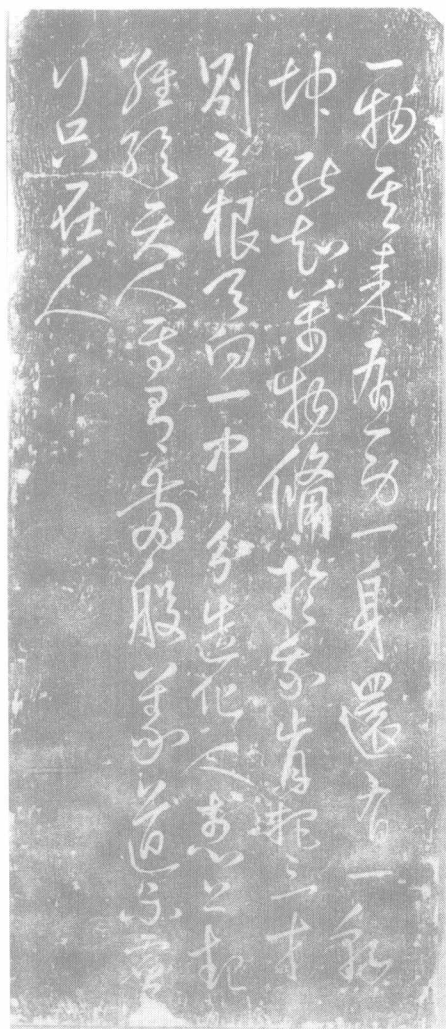 一物其來有一身一身還有一乾
坤能知萬物備於我肯把三才
別立根天向一中分造化人於心上起
經綸天人焉有兩般義道不虛
行只在人